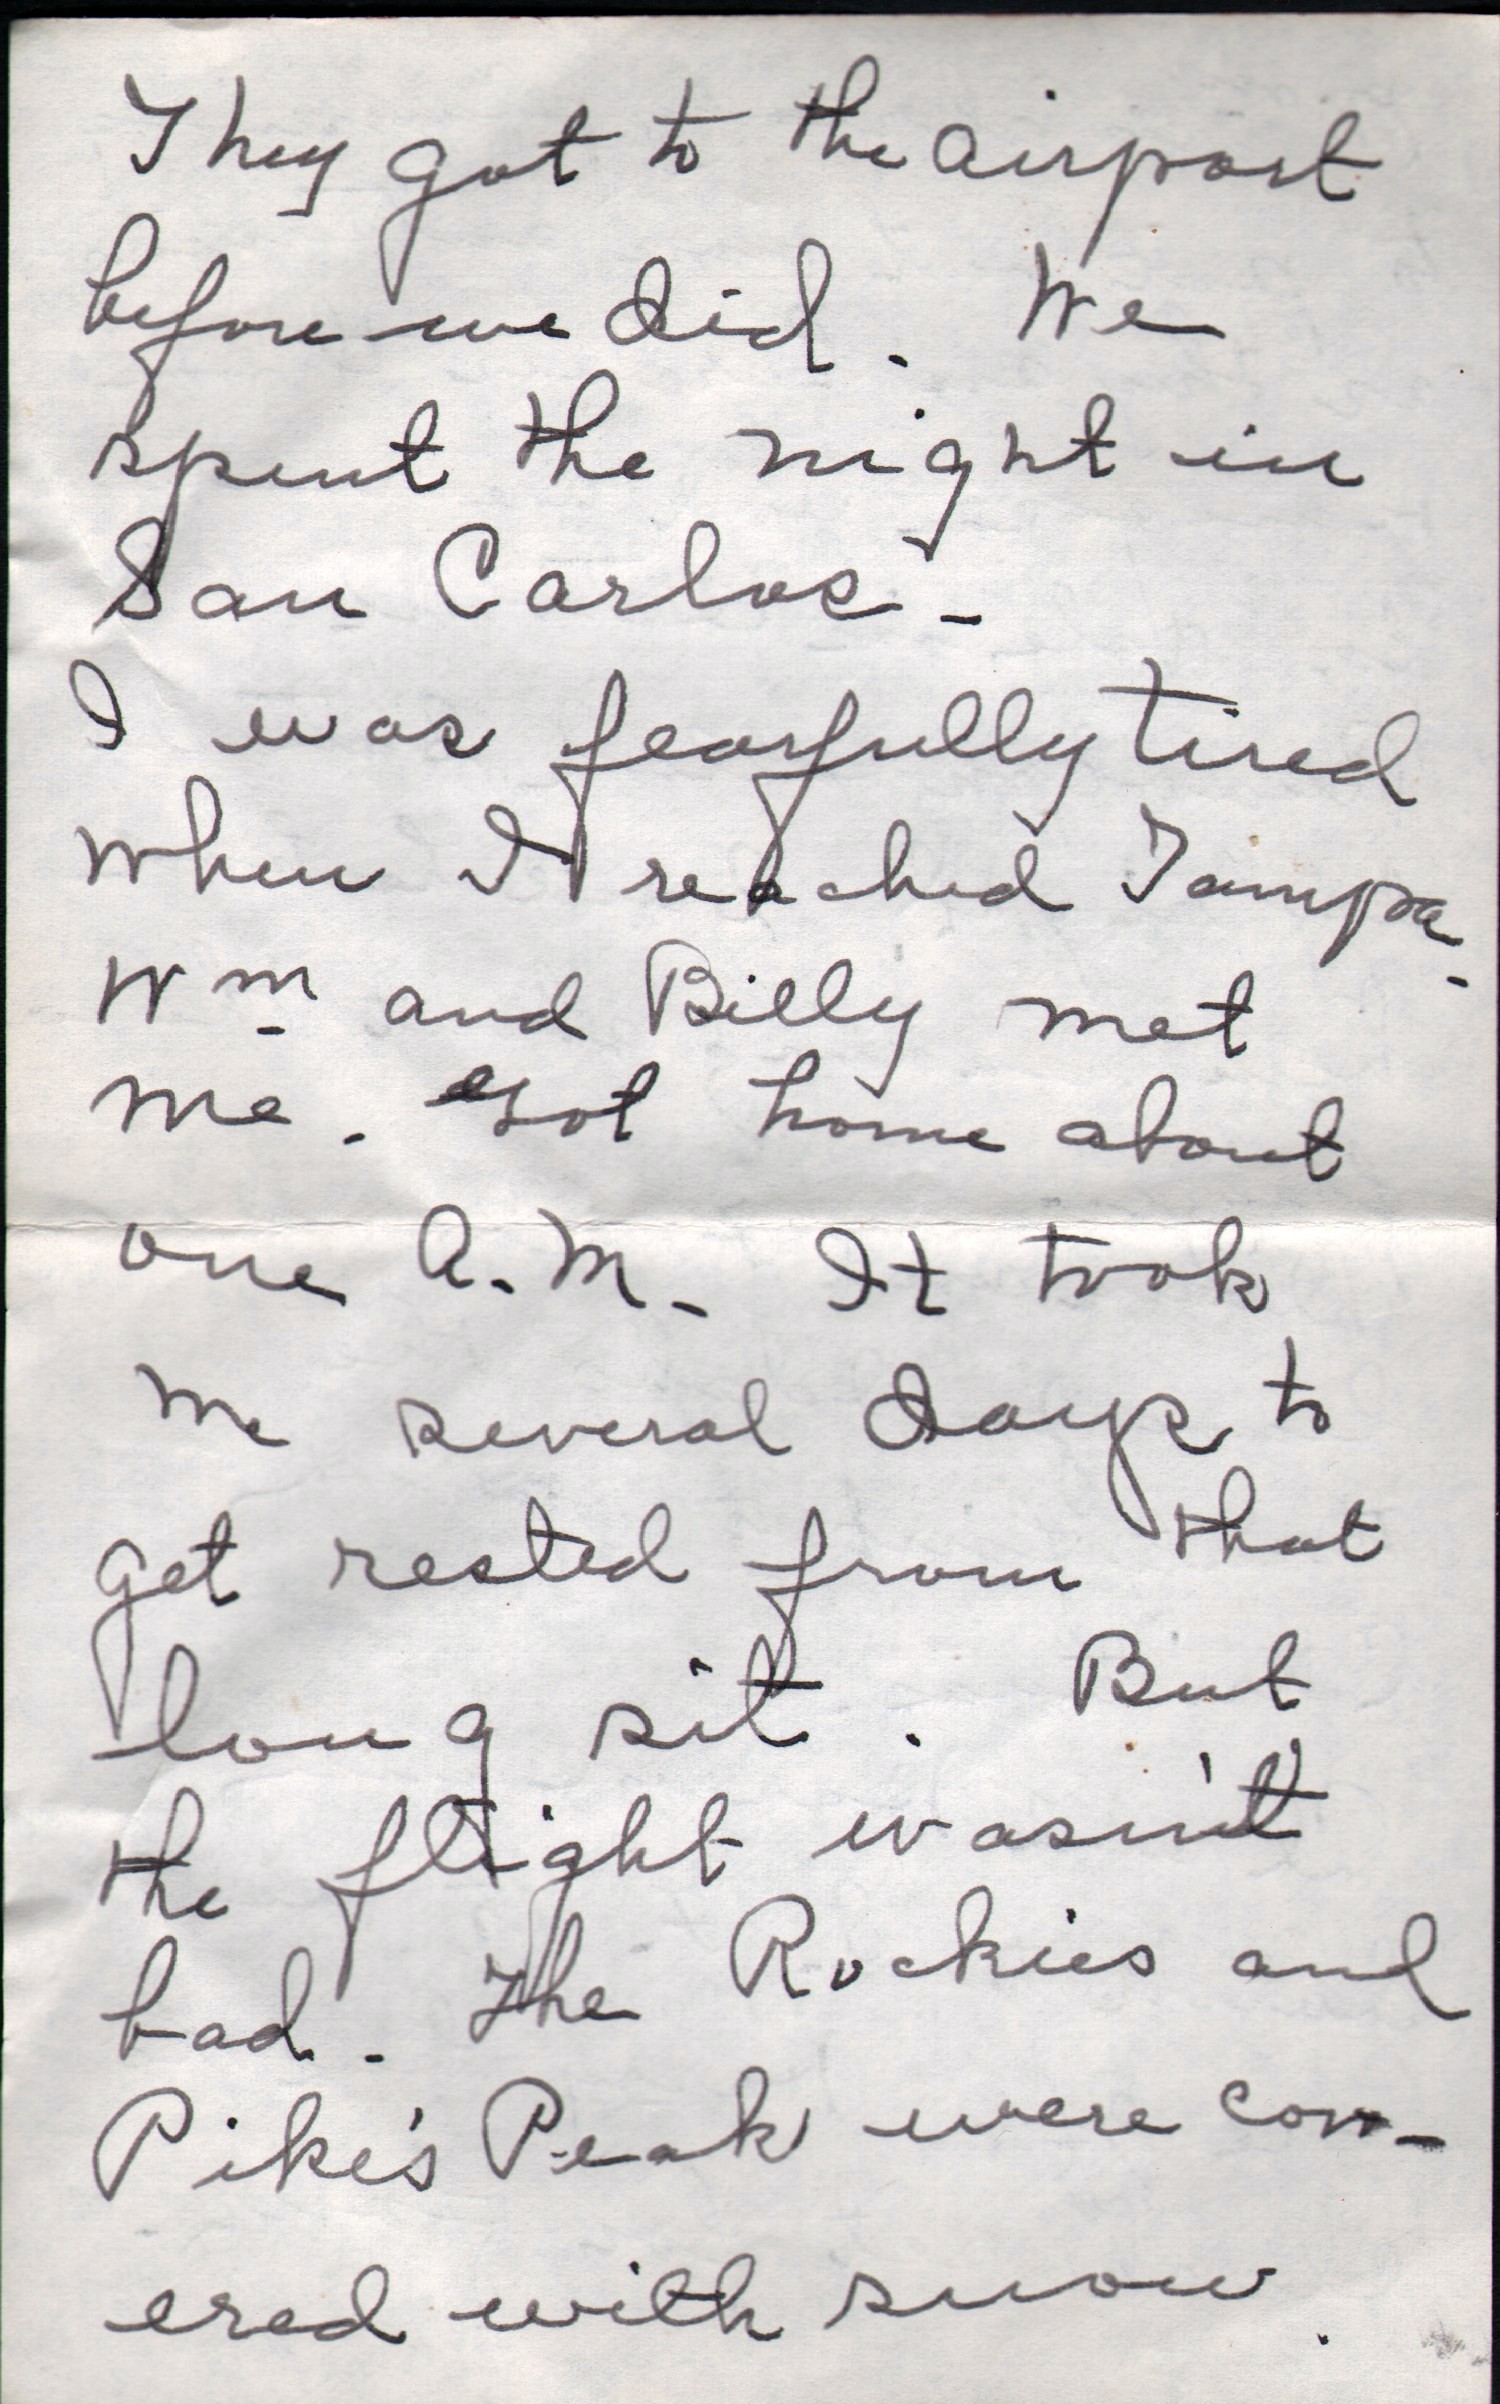 They got to the airport
before we did. We
spent the night in
San Carlos.
I was fearfully tired
when I reached Tampa.
Wm and Billy met
me. Got home about
one A.M. It took
me several days to
get rested from that
long sit. But
the flight wasn't
bad. The Rockies and
Pike's Peak were cov-
ered with snow.